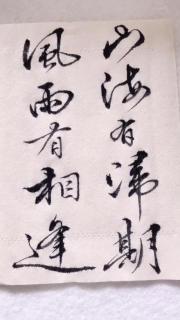 山海有歸期
風雨有相逢